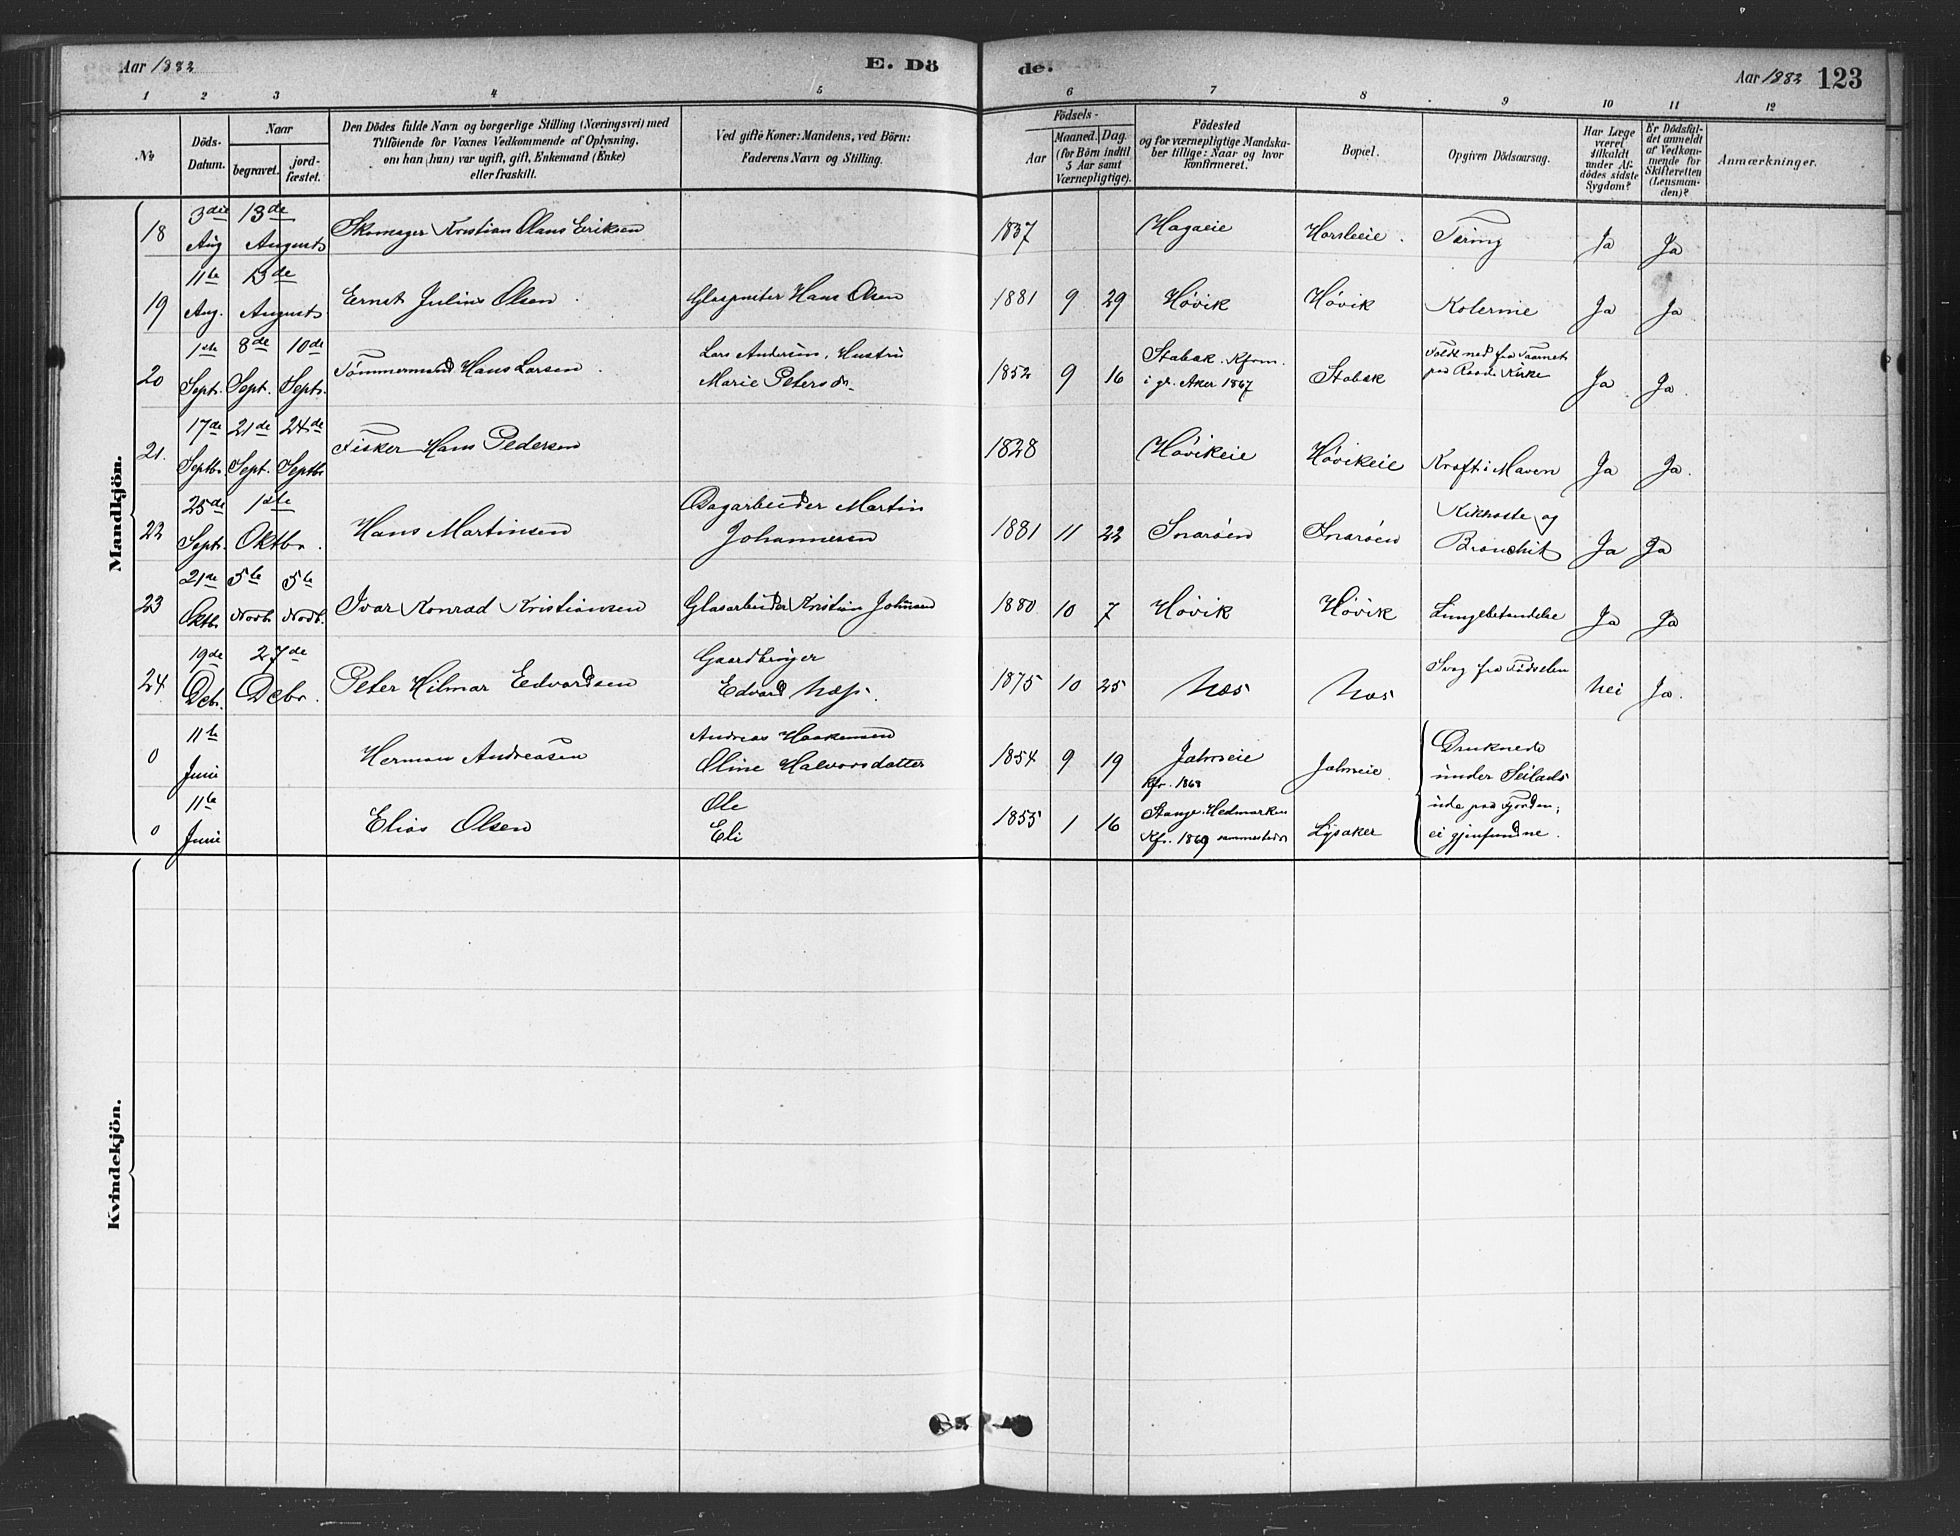 Aar 1882 E. Dö
de. Aar 1882 123
1 2 3 4 5
6 7 8 9 10 11 12
No
Döds-
Datum.
Naar
begravet.
jord-
fæstet.
Den Dödes fulde Navn og borgerlige Stilling (Næringsvei) med
Tilföiende for Voxnes Vedkommende af Oplysning,
om han (hun) var ugift, gift, Enkemand (Enke)
eller fraskilt.
Ved gifte Koner: Mandens, ved Börn:
Faderens Navn og Stilling.
Födsels-
Aar
Maaned. Dag.
(for Börn indtil
5 Aar samt
Værnepligtige).
Födested
og for værnepligtige Mandska-
ber tillige: Naar og hvor
konfirmeret.
Bopæl.
Opgiven Dödsaarsag.
Har Læge
været
tilkaldt
under Af-
dödes sidste
Sygdom?
Er Dödsfal-
det anmeldt
af Vedkom-
mende for
Skifteretten
(Lensman-
den)?
Anmærkninger.
Mandkjön.
18 3die Aug 13de Augusts Skomager Kristian Olaus Eriksen 1837 Hagaeie Horsleeie. Tæring Ja Ja
19 11te Aug. 13de Augusts Ernst Julius Olsen Glaspuster Hans Olsen 1881 9 29 Høvik Høvik Kolerine Ja Ja
20 1ste Septr. 8de Sept. 10de Septr. Tømmermand Hans Larsen Lars Andersen, Hustru
Marie Petersdr. 1852 9 16 Stabæk. Kfrm.
i gl. Aker 1867 Stabæk Faldt ned fra Taarnet
paa Raade Kirke Ja Ja.
21. 17de Septbr. 21de Sept. 24de Septbr. Fisker Hans Pedersen 1828 Høvikeie Høvikeie Kræft i Maven Ja Ja.
22 25de Septr. 1ste Oktbr. Hans Martinsen Dagarbeider Martin
Johannesen 1881 11 22 Snarøen Snarøen Kikhoste og
Bronchit Ja Ja
23 21de Oktbr. 5te Novb. 5te Novb. Ivar Konrad Kristiansen Glasarbeider Kristian Johnsen 1880 10 7 Høvik Høvik Lungebetændelse Ja Ja
24. 19de Debr. 27de Debr. Peter Hilmar Edvardsen Gaardbruger
Edvard Næss. 1875 10 25 Næs Næs Svag fra Fødselen Nei Ja.
0 11te Juni Herman Andreasen Andreas Haakensen
Oline Halvorsdatter 1854 9 19 Jahreeie
Kfr. 1869 Jahreeie Druknede
under Seilads
0 11te Juni Elias Olsen Ole
Eli 1855 1 16 Stange. Hedmarken
Kfr. 1869 sammesteds Lysaker ude paa Fjorden;
ei gjenfundne.
Kvindekjön.